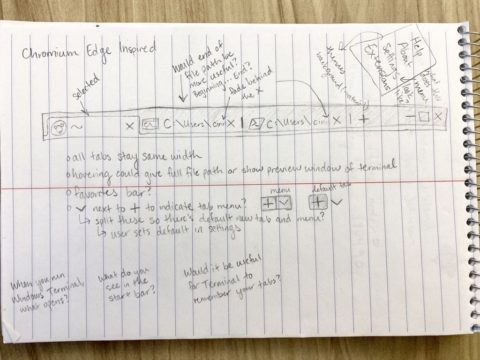 Chromium Edge Inspired
selected
Would end of
file path be
more useful?
Beginning...End?
Fade behind
the X
themes
background
Help
Float
Settings
Extensions
menu
~ X C:\Users\cin X | C:\Users\cin X | + - □ X
○ all tabs stay same width
○ hovering could give full file path or show preview window of terminal
○ favorites bar?
○ ∨ next to + to indicate tab menu?
↳ split these so there's default new tab and menu?
↳ user sets default in settings
menu
+ ∨
default tab
+ ∨
When you run
Windows Terminal,
what opens?
What do you
see in the
start bar?
Would it be useful
for Terminal to
remember your tabs?